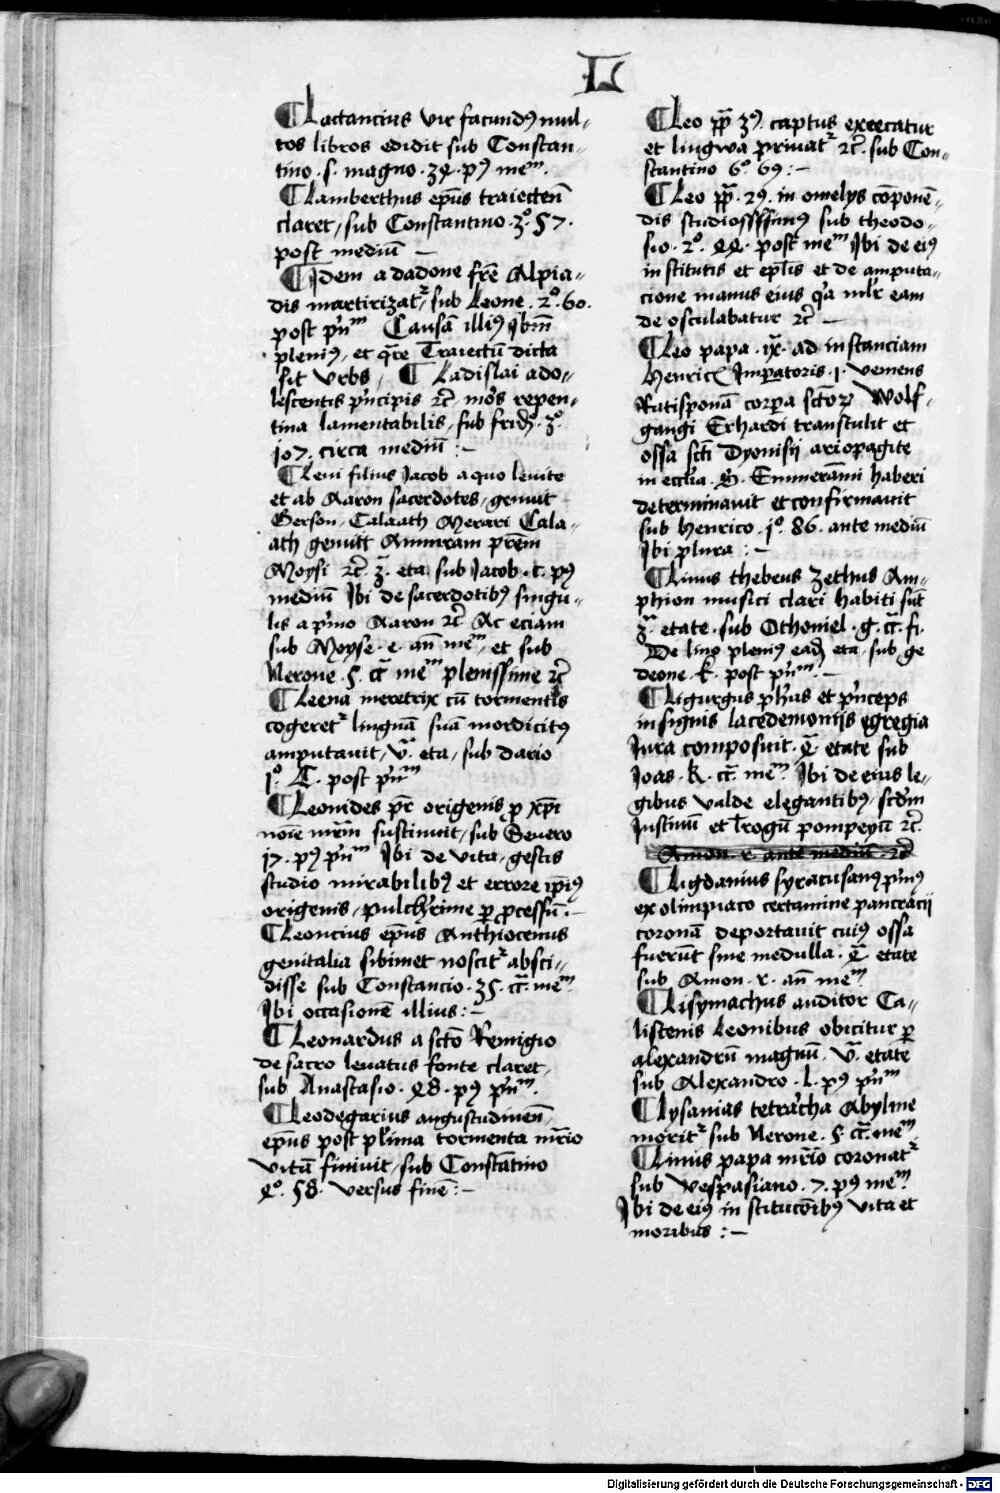 L
¶ Lactancius vir facundꝯ mul-
tos libros edidit sub Constan-
tino . s . magno . 34 . pꝯ meᵐ.
¶ Lamberthus ep̄us traiecteñ
claret, sub Constantino . 3° . 57 .
post mediū —
¶ Idem a dadone fr̄e Alpia-
dis martirizatᷣ, sub Leone . 2° . 60 .
post pⁱnᵐ Causā illiꝯ Ibīn
pleniꝯ, et qr̄e Traiectū dicta
sit Vrbs, ¶ Ladislai ado-
lescentis pⁱncipis ⁊c̄ . mōs repen-
tina lamentabilis, sub frid̄° . 3° .
107 . circa mediū : —
¶ Leui filius Jacob a quo leuite
et ab Aaron sacerdotes, genuit
Gerson . Calaath Merari Cala-
ath genuitt Ammram prēm
Moysi ⁊c̄ 3ᵃ . eta sub Jacob . c . pꝯ
mediū Ibi de sacerdotibꝯ singu-
lis a pⁱmo Aaron ⁊c̄ Ac eciam
sub Moyse . e . añ meᵐ, et sub
Nerone . 5 . cᷓ meᵐ plenissime ⁊c̄
¶ Leena meretrix cū tormentis
cogeretᷣ linguā suā mordicitꝯ
amputauit, vᵃ . eta, sub dario
1° . A . post pⁱnᵐ
¶ Leonides pr̄ origenis ꝓ xp̄i
noīe mr̄iū sustinuit, sub Seuero
17 . pꝯ pⁱnᵐ Ibi de vita, gestis
studio mirabilibꝯ et errore ip̄iꝯ
origenis, pulcher̄ime ꝑ ꝓcessū . —
¶ Leoncius ep̄us Anthiocenus
genitalia sibimet noscitᷣ absci-
disse sub Constancio . 35 . cᷓ . meᵐ
Ibi occasionē illius : —
¶ Leonardus a sctō Remigio
de sacro leuatus fonte claret,
sub Anastasio . 48 . pꝯ pⁱnᵐ .
¶ Leodegarius augustudineñ,
ep̄us post plⁱima tormenta mr̄io
vitā finiuit, sub Constātino
4° . 58 . versus finē : —
¶ Leo pp̄ 3ꝯ . captus excecatur
et lingwa priuatᷣ ⁊c̄ . sub Con-
stantino 6° . 69 : —
¶ Leo pp̄ . 2ꝯ . in omelys cōponē-
dis studiosissimꝯ sub theodo-
sio . 2° . 44 . post meᵐ Ibi de eiꝯ
institutis et epl̄is et de amputa-
cione manus eius qⁱa ml̄r eam
de osculabatur ⁊c̄ —
¶ Leo papa . ix . ad instanciam
Henrici Imperatoris . 1 . veniens
Ratisponā corpora sctōꝝ Wolf-
gangi Erhardi transtulit et
ossa scti Dyonisij ariopagite
in eccl̄ia . S . Emmerāmi haberi
determinauit et confirmauit
sub Henrico . 1° . 86 . ante mediū
Ibi plura : —
¶ Linus thebeus Zethus Am-
phion musici clari habiti sūt
3ᵃ etate . sub Othoniel . g . cᷓ . fi .
De lino pleniꝯ ead̄ eta . sub ge
deone . k . post pⁱnᵐ . —
¶ Ligurgus ph̄us et pⁱnceps
insignis lacedemonijs egregia
Iura composuit . 4ᵃ etate sub
Ioas . K . cᷓ . meᵐ . Ibi de eius le-
gibus valde elegantibꝯ, scd̄m
Iustinū et trogū pompeyū ⁊c̄ .
Amon . r . ante mediū . ⁊c̄
¶ Ligdanius syracusanꝯ pⁱmꝯ
ex olimpiaco certamine pancracij
coronā deportauit cuiꝯ ossa
fuerūt sine medulla . 4ᵃ etate
sub Amon . r . añ meᵐ
¶ Lisymachus auditor Ca-
listenis Leonibus obicitur ꝑ
alexandrū magnū, vᵃ . etate
sub Alexandro . l . pꝯ pⁱnᵐ
¶ Lysanias tetrarcha Abyline
moritᷣ sub Nerone . 5 cᷓ . meᵐ
¶ Linus papa mr̄io coronatᷣ
sub Vespasiano . 7 . pꝯ meᵐ .
Ibi de eiꝯ institucōibꝯ vita et
moribus : —
Digitalisierung gefördert durch die Deutsche Forschungsgemeinschaft - DFG